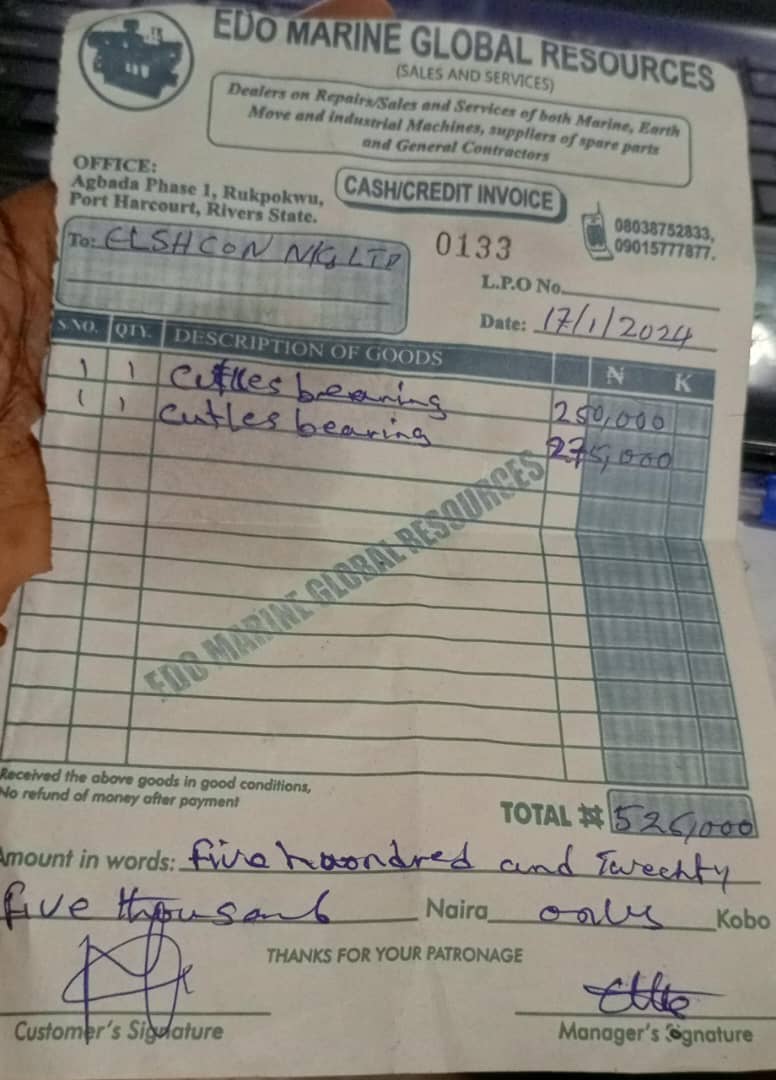 EDO MARINE GLOBAL RESOURCES
(SALES AND SERVICES)
Dealers on Repairs/Sales and Services of both Marine, Earth
Move and industrial Machines, suppliers of spare parts
and General Contractors
OFFICE:
Agbada Phase 1, Rukpokwu,
Port Harcourt, Rivers State.
CASH/CREDIT INVOICE
08038752833,
09015777877.
To: ELSHCON NIG LTD
0133
L.P.O No.
Date: 17/1/2024
S.NO. QTY. DESCRIPTION OF GOODS ₦ K
1 1 Cutles bearing 250,000
1 1 Cutles bearing 275,000
EDO MARINE GLOBAL RESOURCES
Received the above goods in good conditions,
No refund of money after payment
TOTAL ₦ 525,000
Amount in words: five hoondred and Twechty
five thousand Naira only Kobo
THANKS FOR YOUR PATRONAGE
Customer's Signature
Manager's Signature